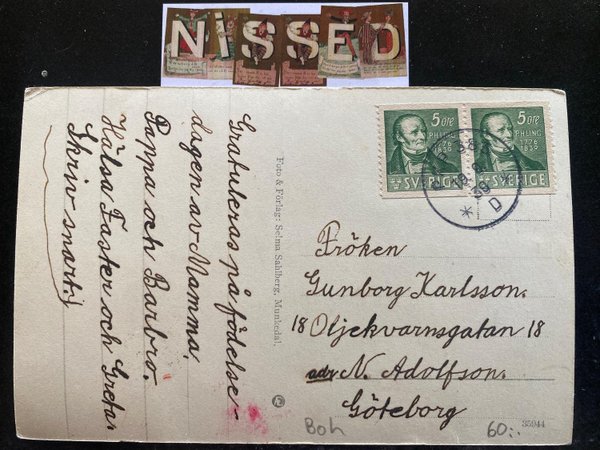 NiSSED
Gratuleras på födelse-
dagen av Mamma,
Pappa och Barbro.
Hälsa Faster och Greta.
Skriv snart!
Foto & Förlag: Selma Sahlberg, Munkedal.
5 ÖRE
5 ÖRE
PHLING
1726
1839
SVERIGE
SVERIGE
39
D
Fröken
Gunborg Karlsson.
18 Oljekvarnsgatan 18
adr. N. Adolfson.
Göteborg
Boh
60:-
35944